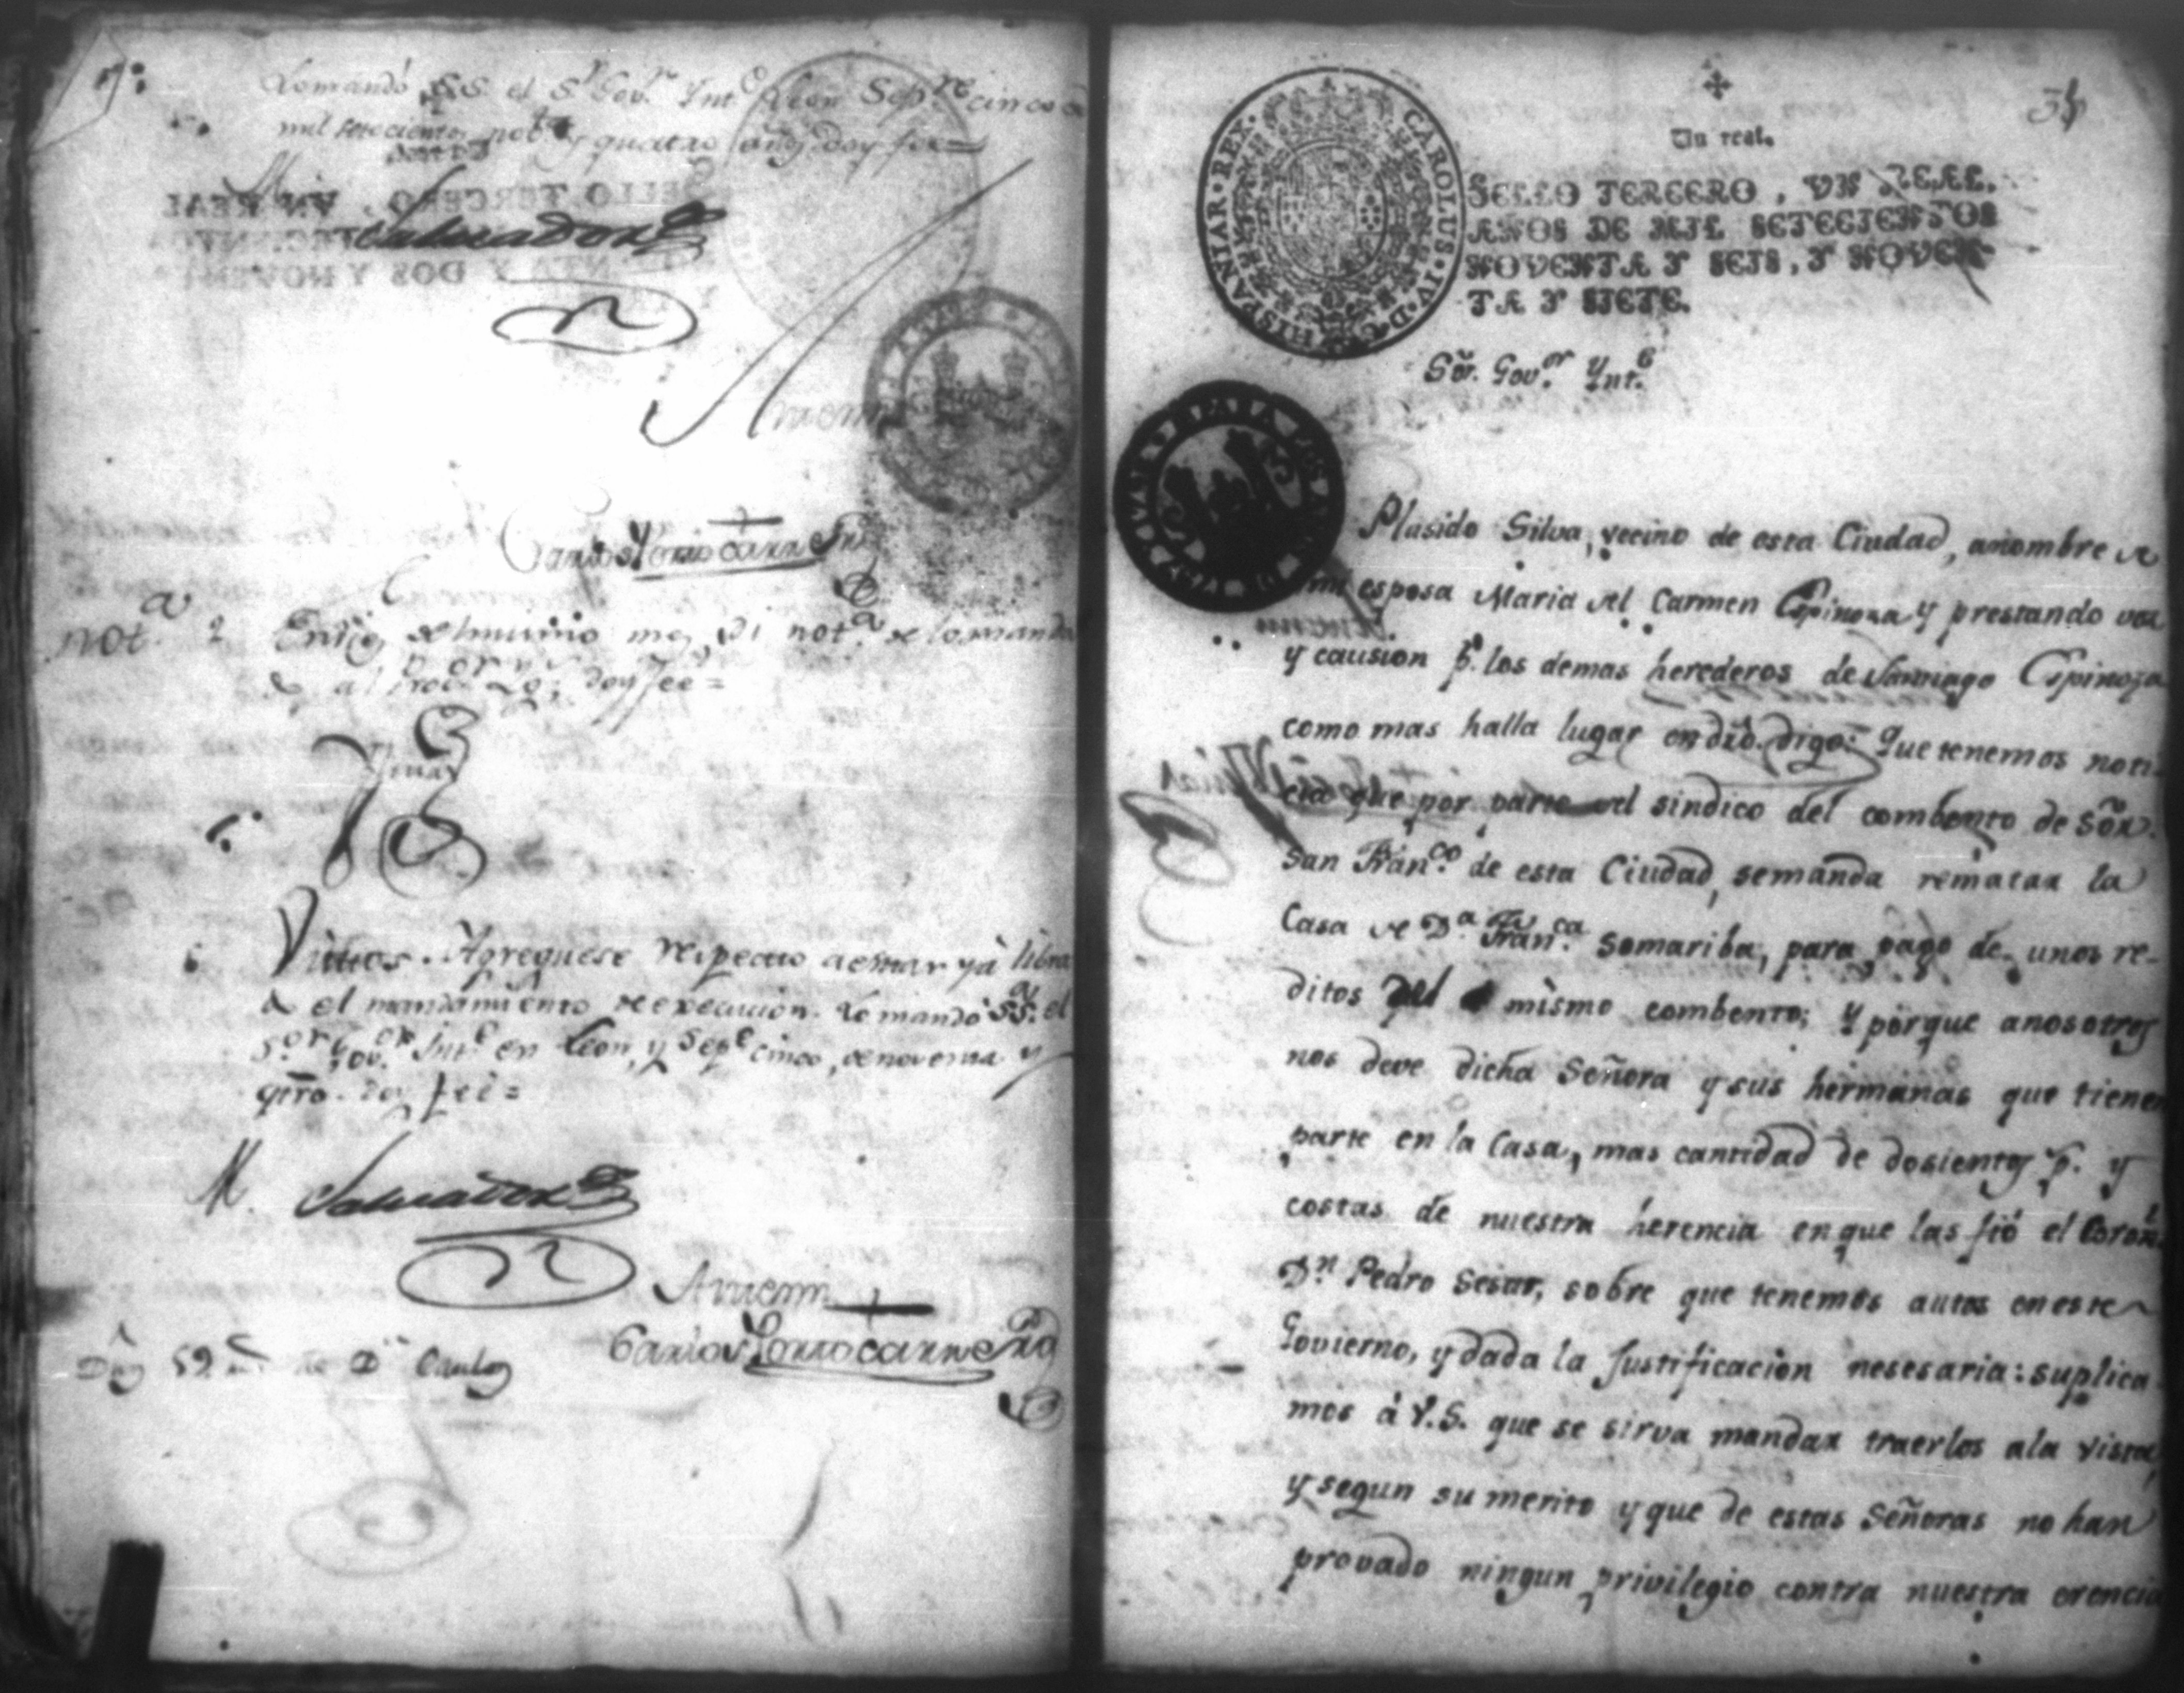 Lo mandó S.S. el S.r Gov.r Int.e Leon Sep.re cinco de
mil setecientos nov.ta y quatro años doy fee=
M. Salvador
Ante mi
Carlos
not.a 2 En dig del mismo mes, di not.a de lo mandado
al doy fee=
Vistos. Agreguese respecto a estar ya libra
do el mandamiento de execucion. Lo mandó S.S.a el
S.or Gov.or Int.e en Leon, y Sep.e cinco, de noventa y
qtro. doy fee=
M. Salvador
Ante mi
Carlos
34
Un real.
SELLO TERCERO, VN REAL.
AÑOS DE MIL SETECIENTOS
NOVENTA Y SEIS, Y NOVEN-
TA Y SIETE.
CAROLUS · IV · D · G · HISPANIAR · REX ·
Sõr. Gov.or Ynt.e
Plasido Silva, vecino de esta Ciudad, anombre de
mi esposa Maria del Carmen Espinoza y prestando voz
y causion p.r los demas herederos de Santiago Espinoza
como mas halla lugar en dr̃o. digo: Que tenemos noti-
cia que por parte del sindico del combento de Sõr.
San Frán.co de esta Ciudad, semanda rematar la
Casa de D.a Frán.ca Somariba, para pago de unos re-
ditos del mismo combento; y porque anosotros
nos deve dicha Señora y sus hermanas que tienen
parte en la Casa, mas cantidad de dosientos p.s y
costas de nuestra herencia en que las fió el Coron.l
D.n Pedro Sesar, sobre que tenemos autos en este
Govierno, y dada la Justificacion nesesaria: suplica-
mos á V.S. que se sirva mandar traerlos ala vista,
y segun su merito y que de estas Señoras no han
provado ningun privilegio contra nuestra erencia